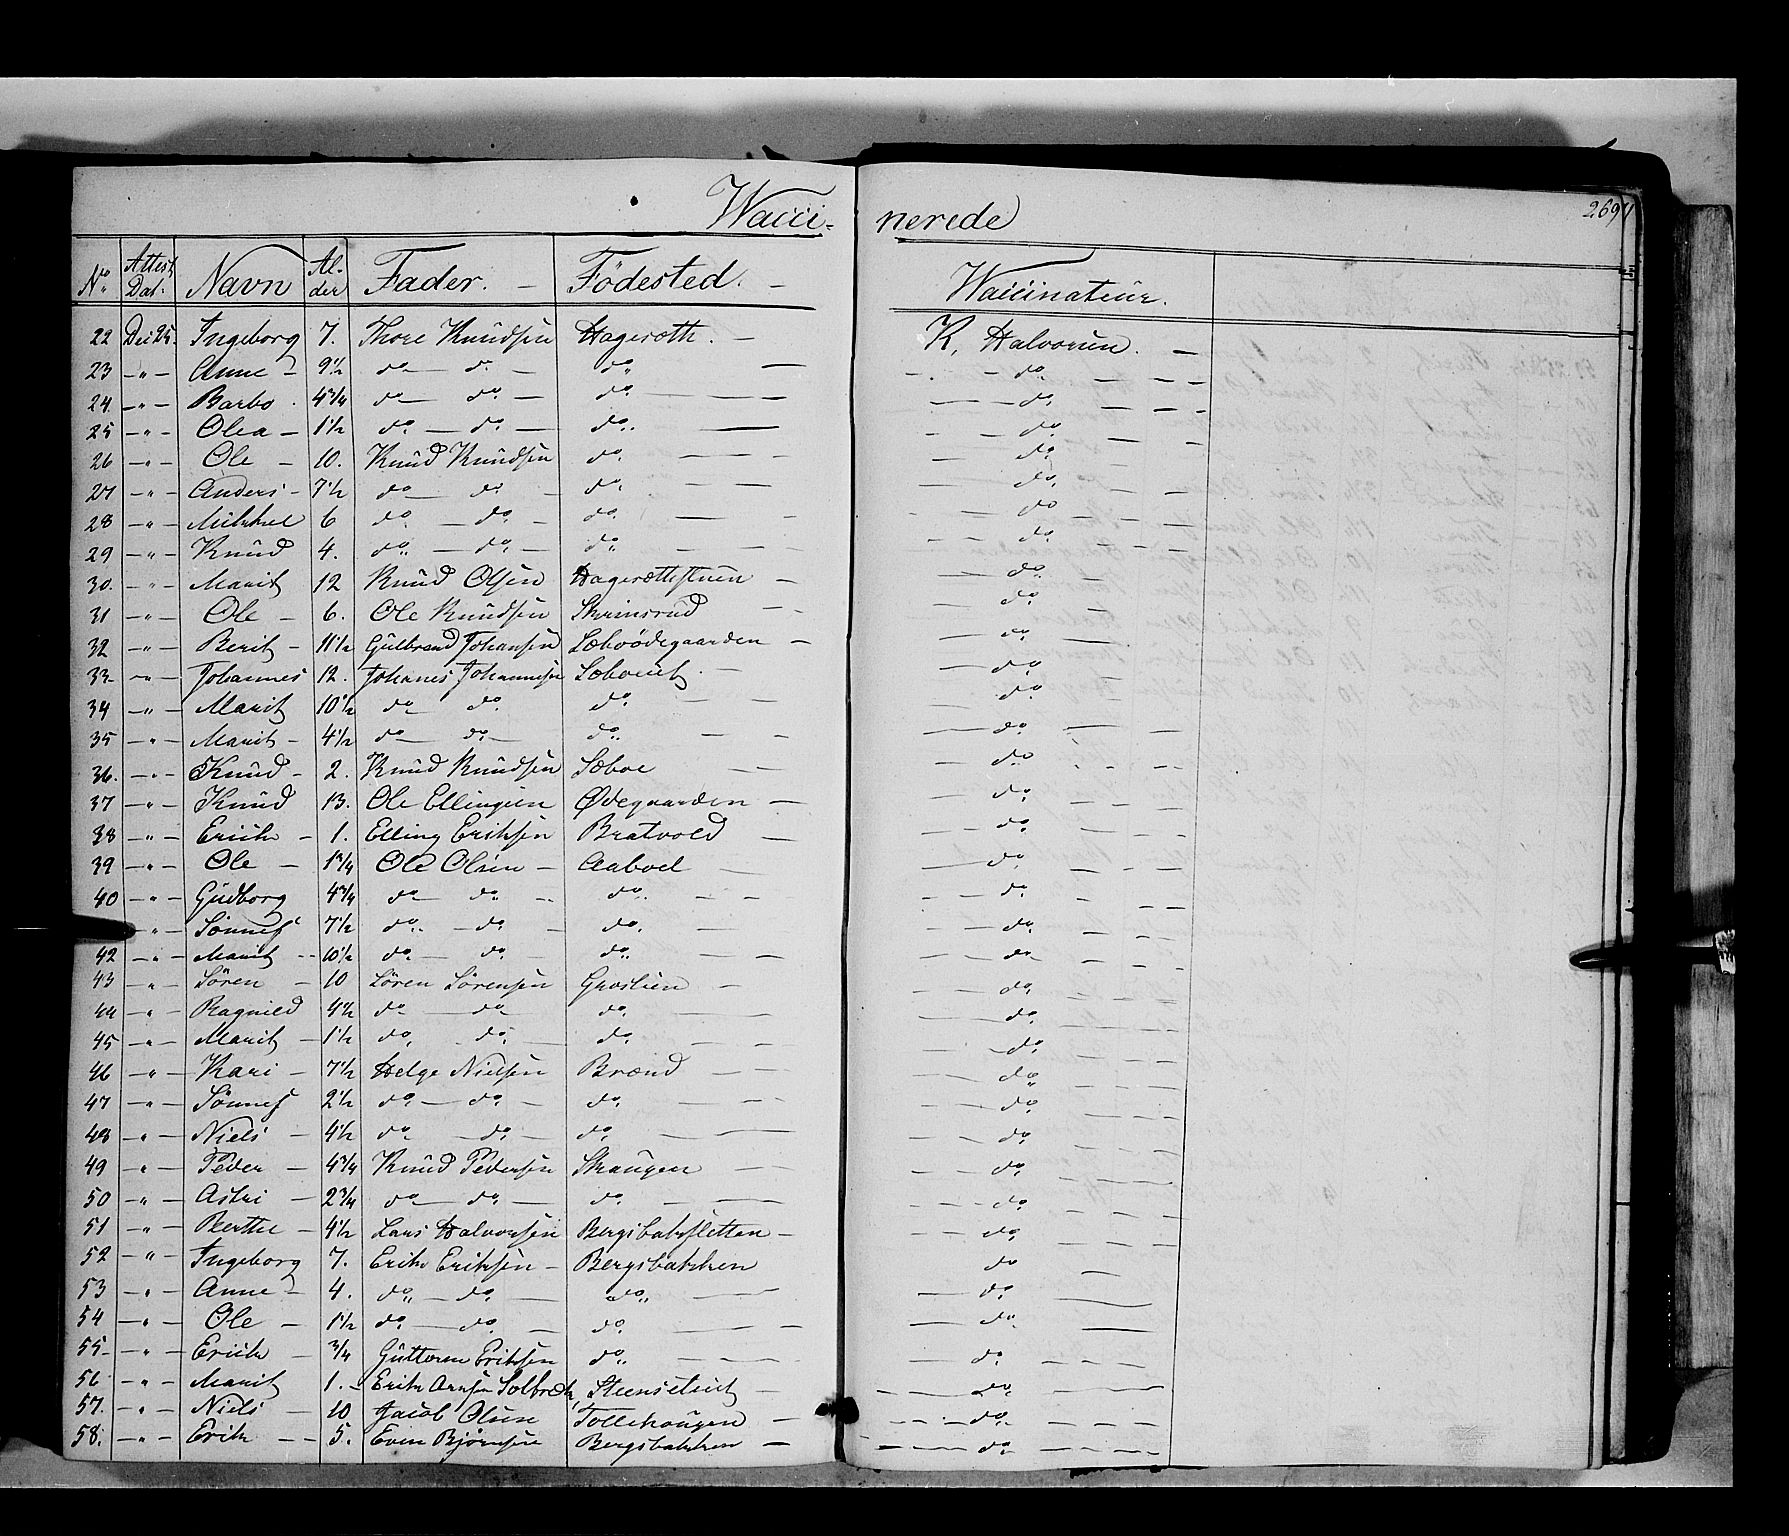 Wacci- nerede
269
No. Attest. Dat. Navn Alder Fader. Födested. Waccinateur.
22 Dec 24. Ingeborg 7. Thore Knudsen Hageroth. — K. Halvorsen. —
23 — " — Anne — 9½ do — do — do — do
24. — " — Barbo. 4¾ do — do — do — do
25 — " — Olea — 1½ do — do — do — do
26 — " — Ole — 10. Knud Knudsen do — do
27 — " — Anders — 7½ do — do — do — do
28 — " — Mikkel 6 do — do — do — do
29 — " — Knud 4. do — do — do — do
30. — " — Marit 12 Knud Olsen Hagerothstuen — do
31 — " — Ole — 6. Ole Knudsen Skrinsrud — do
32 — " — Berit — 11½ Gulbrand Johansen Sæboödegaarden — do
33 — " — Johannes 12. Johanes Johannesen do
34 — " — Marit 10½ do do do — do
35 — " — Marit — 4½ do — do — do — do
36. — " — Knud — 2. Knud Knudsen Sæboe — do
37 — " — Knud 13. Ole Ellingsen Ødegaarden — do
38 — " — Erich — 1. Elling Eriksen Bratvold — do
39 — " — Ole — 1¾ Ole Olsen — Aaboel — do
40 — " — Gudborg 4¾ do — do — do — do
— " — Sönnef 7½ do — do — do — do
42 — " — Marit — 10½ do — do do — do
43 — " — Sören — 10 Sören Sörensen Groslien — do
44 — " — Ragnild 4½ do — do do — do
45 — " — Marit — 1½ do do do — do
46 — " — Kari — 7½ Helge Nielsen Brænd — do
47 — " — Sönnef 2½ do — do — do — do
48 — " — Niels — 4½ do — do — do — do
49 — " — Peder — 4¾ Knud Pedersen Skaugen — do
50 — " — Astri — 2¾ do — do — do — do
51 — " — Berthe — 4½ Lars Halvorsen Bergsbaksletten — do
52 — " — Ingeborg 7. Erik Eriksen — Bergsbakken do
53 — " — Anne — 4. do — do — do — do
54 — " — Ole — 1½ do — do — do — do
55 — " — Erich — ¾ Guttorm Eriksen do — do
56 — " — Marit 1. — Erik Arnsen Solbræk, do
57. — " — Niels — 10 Jacob Olsen Tollehaugen — do
58. — " — Erik — 5. Even Bjørnsen Bergsbakken — do